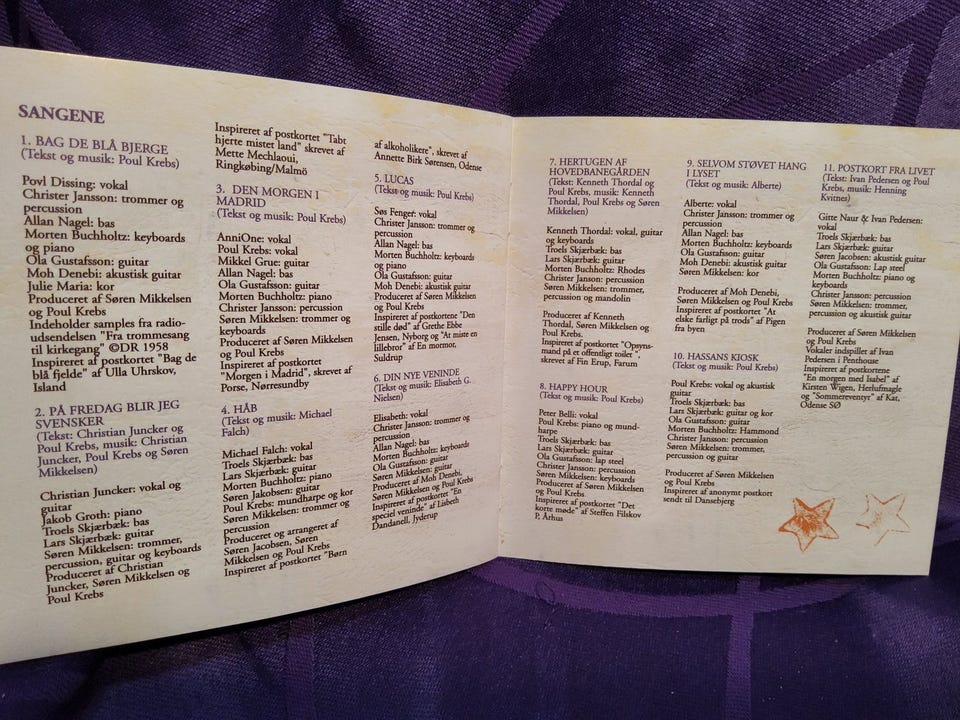 SANGENE
1. BAG DE BLÅ BJERGE
(Tekst og musik: Poul Krebs)
Povl Dissing: vokal
Christer Jansson: trommer og
percussion
Allan Nagel: bas
Morten Buchholtz: keyboards
og piano
Ola Gustafsson: guitar
Moh Denebi: akustisk guitar
Julie Maria: kor
Produceret af Søren Mikkelsen
og Poul Krebs
Indeholder samples fra radio-
udsendelsen "Fra trommesang
til kirkegang" ©DR 1958
Inspireret af postkortet "Bag de
blå fjelde" af Ulla Uhrskov,
Island
2. PÅ FREDAG BLIR JEG
SVENSKER
(Tekst: Christian Juncker og
Poul Krebs, musik: Christian
Juncker, Poul Krebs og Søren
Mikkelsen)
Christian Juncker: vokal og
guitar
Jakob Groth: piano
Troels Skjærbæk: bas
Lars Skjærbæk: guitar
Søren Mikkelsen: trommer,
percussion, guitar og keyboards
Produceret af Christian
Juncker, Søren Mikkelsen og
Poul Krebs
Inspireret af postkortet "Tabt
hjerte mistet land" skrevet af
Mette Mechlaoui,
Ringkøbing/Malmö
3. DEN MORGEN I
MADRID
(Tekst og musik: Poul Krebs)
AnniOne: vokal
Poul Krebs: vokal
Mikkel Grue: guitar
Allan Nagel: bas
Ola Gustafsson: guitar
Morten Buchholtz: piano
Christer Jansson: percussion
Søren Mikkelsen: trommer og
keyboards
Produceret af Søren Mikkelsen
og Poul Krebs
Inspireret af postkortet
"Morgen i Madrid", skrevet af
Porse, Nørresundby
4. HÅB
(Tekst og musik: Michael
Falch)
Michael Falch: vokal
Troels Skjærbæk: bas
Lars Skjærbæk: guitar
Morten Buchholtz: piano
Søren Jakobsen: guitar
Poul Krebs: mundharpe og kor
Søren Mikkelsen: trommer og
percussion
Produceret og arrangeret af
Søren Jacobsen, Søren
Mikkelsen og Poul Krebs
Inspireret af postkortet "Børn
af alkoholikere", skrevet af
Annette Birk Sørensen, Odense
5. LUCAS
(Tekst og musik: Poul Krebs)
Søs Fenger: vokal
Christer Jansson: trommer og
percussion
Allan Nagel: bas
Morten Buchholtz: keyboards
og piano
Ola Gustafsson: guitar
Moh Denebi: akustisk guitar
Produceret af Søren Mikkelsen
og Poul Krebs
Inspireret af postkortet "Den
stille død" af Grethe Ebbe
Jensen, Nyborg og "At miste en
lillebror" af En mormor,
Suldrup
6. DIN NYE VENINDE
(Tekst og musik: Elisabeth G.
Nielsen)
Elisabeth: vokal
Christer Jansson: trommer og
percussion
Allan Nagel: bas
Morten Buchholtz: keyboards
Ola Gustafsson: guitar
Søren Mikkelsen: guitar
Produceret af Moh Denebi,
Søren Mikkelsen og Poul Krebs
Inspireret af postkortet "En
speciel veninde" af Lisbeth
Dandanell, Jyderup
7. HERTUGEN AF
HOVEDBANEGÅRDEN
(Tekst: Kenneth Thordal og
Poul Krebs, musik: Kenneth
Thordal, Poul Krebs og Søren
Mikkelsen)
Kenneth Thordal: vokal, guitar
og keyboards
Troels Skjærbæk: bas
Lars Skjærbæk: guitar
Morten Buchholtz: Rhodes
Christer Janson: percussion
Søren Mikkelsen: trommer,
percussion og mandolin
Produceret af Kenneth
Thordal, Søren Mikkelsen og
Poul Krebs.
Inspireret af postkortet "Opsyns-
mand på et offentligt toilet",
skrevet af Fin Erup, Farum
8. HAPPY HOUR
(Tekst og musik: Poul Krebs)
Peter Belli: vokal
Poul Krebs: piano og mund-
harpe
Troels Skjærbæk: bas
Lars Skjærbæk: guitar
Ola Gustafsson: lap steel
Christer Jansson: percussion
Søren Mikkelsen: keyboards
Produceret af Søren Mikkelsen
og Poul Krebs
Inspireret af postkortet "Det
korte møde" af Steffen Filskov
P, Århus
9. SELVOM STØVET HANG
I LYSET
(Tekst og musik: Alberte)
Alberte: vokal
Christer Jansson: trommer og
percussion
Allan Nagel: bas
Morten Buchholtz: keyboards
Ola Gustafsson: guitar
Moh Denebi: akustisk guitar
Søren Mikkelsen: kor
Produceret af Moh Denebi,
Søren Mikkelsen og Poul Krebs
Inspireret af postkortet "At
elske farligt på trods" af Pigen
fra byen
10. HASSANS KIOSK
(Tekst og musik: Poul Krebs)
Poul Krebs: vokal og akustisk
guitar
Troels Skjærbæk: bas
Lars Skjærbæk: guitar og kor
Ola Gustafsson: guitar
Morten Buchholtz: Hammond
Christer Jansson: percussion
Søren Mikkelsen: trommer,
percussion og guitar
Produceret af Søren Mikkelsen
og Poul Krebs
Inspireret af anonymt postkort
sendt til Dansebjerg
11. POSTKORT FRA LIVET
(Tekst: Ivan Pedersen og Poul
Krebs, musik: Henning
Kvitnes)
Gitte Naur & Ivan Pedersen:
vokal
Troels Skjærbæk: bas
Lars Skjærbæk: guitar
Søren Jacobsen: akustisk guitar
Ola Gustafsson: Lap steel
Morten Buchholtz: piano og
keyboards
Christer Jansson: percussion
Søren Mikkelsen: trommer,
percussion og akustisk guitar
Produceret af Søren Mikkelsen
og Poul Krebs
Vokaler indspillet af Ivan
Pedersen i Penthouse
Inspireret af postkortene
"En morgen med Isabel" af
Kirsten Wigen, Herlufmagle
og "Sommereventyr" af Kat,
Odense SØ